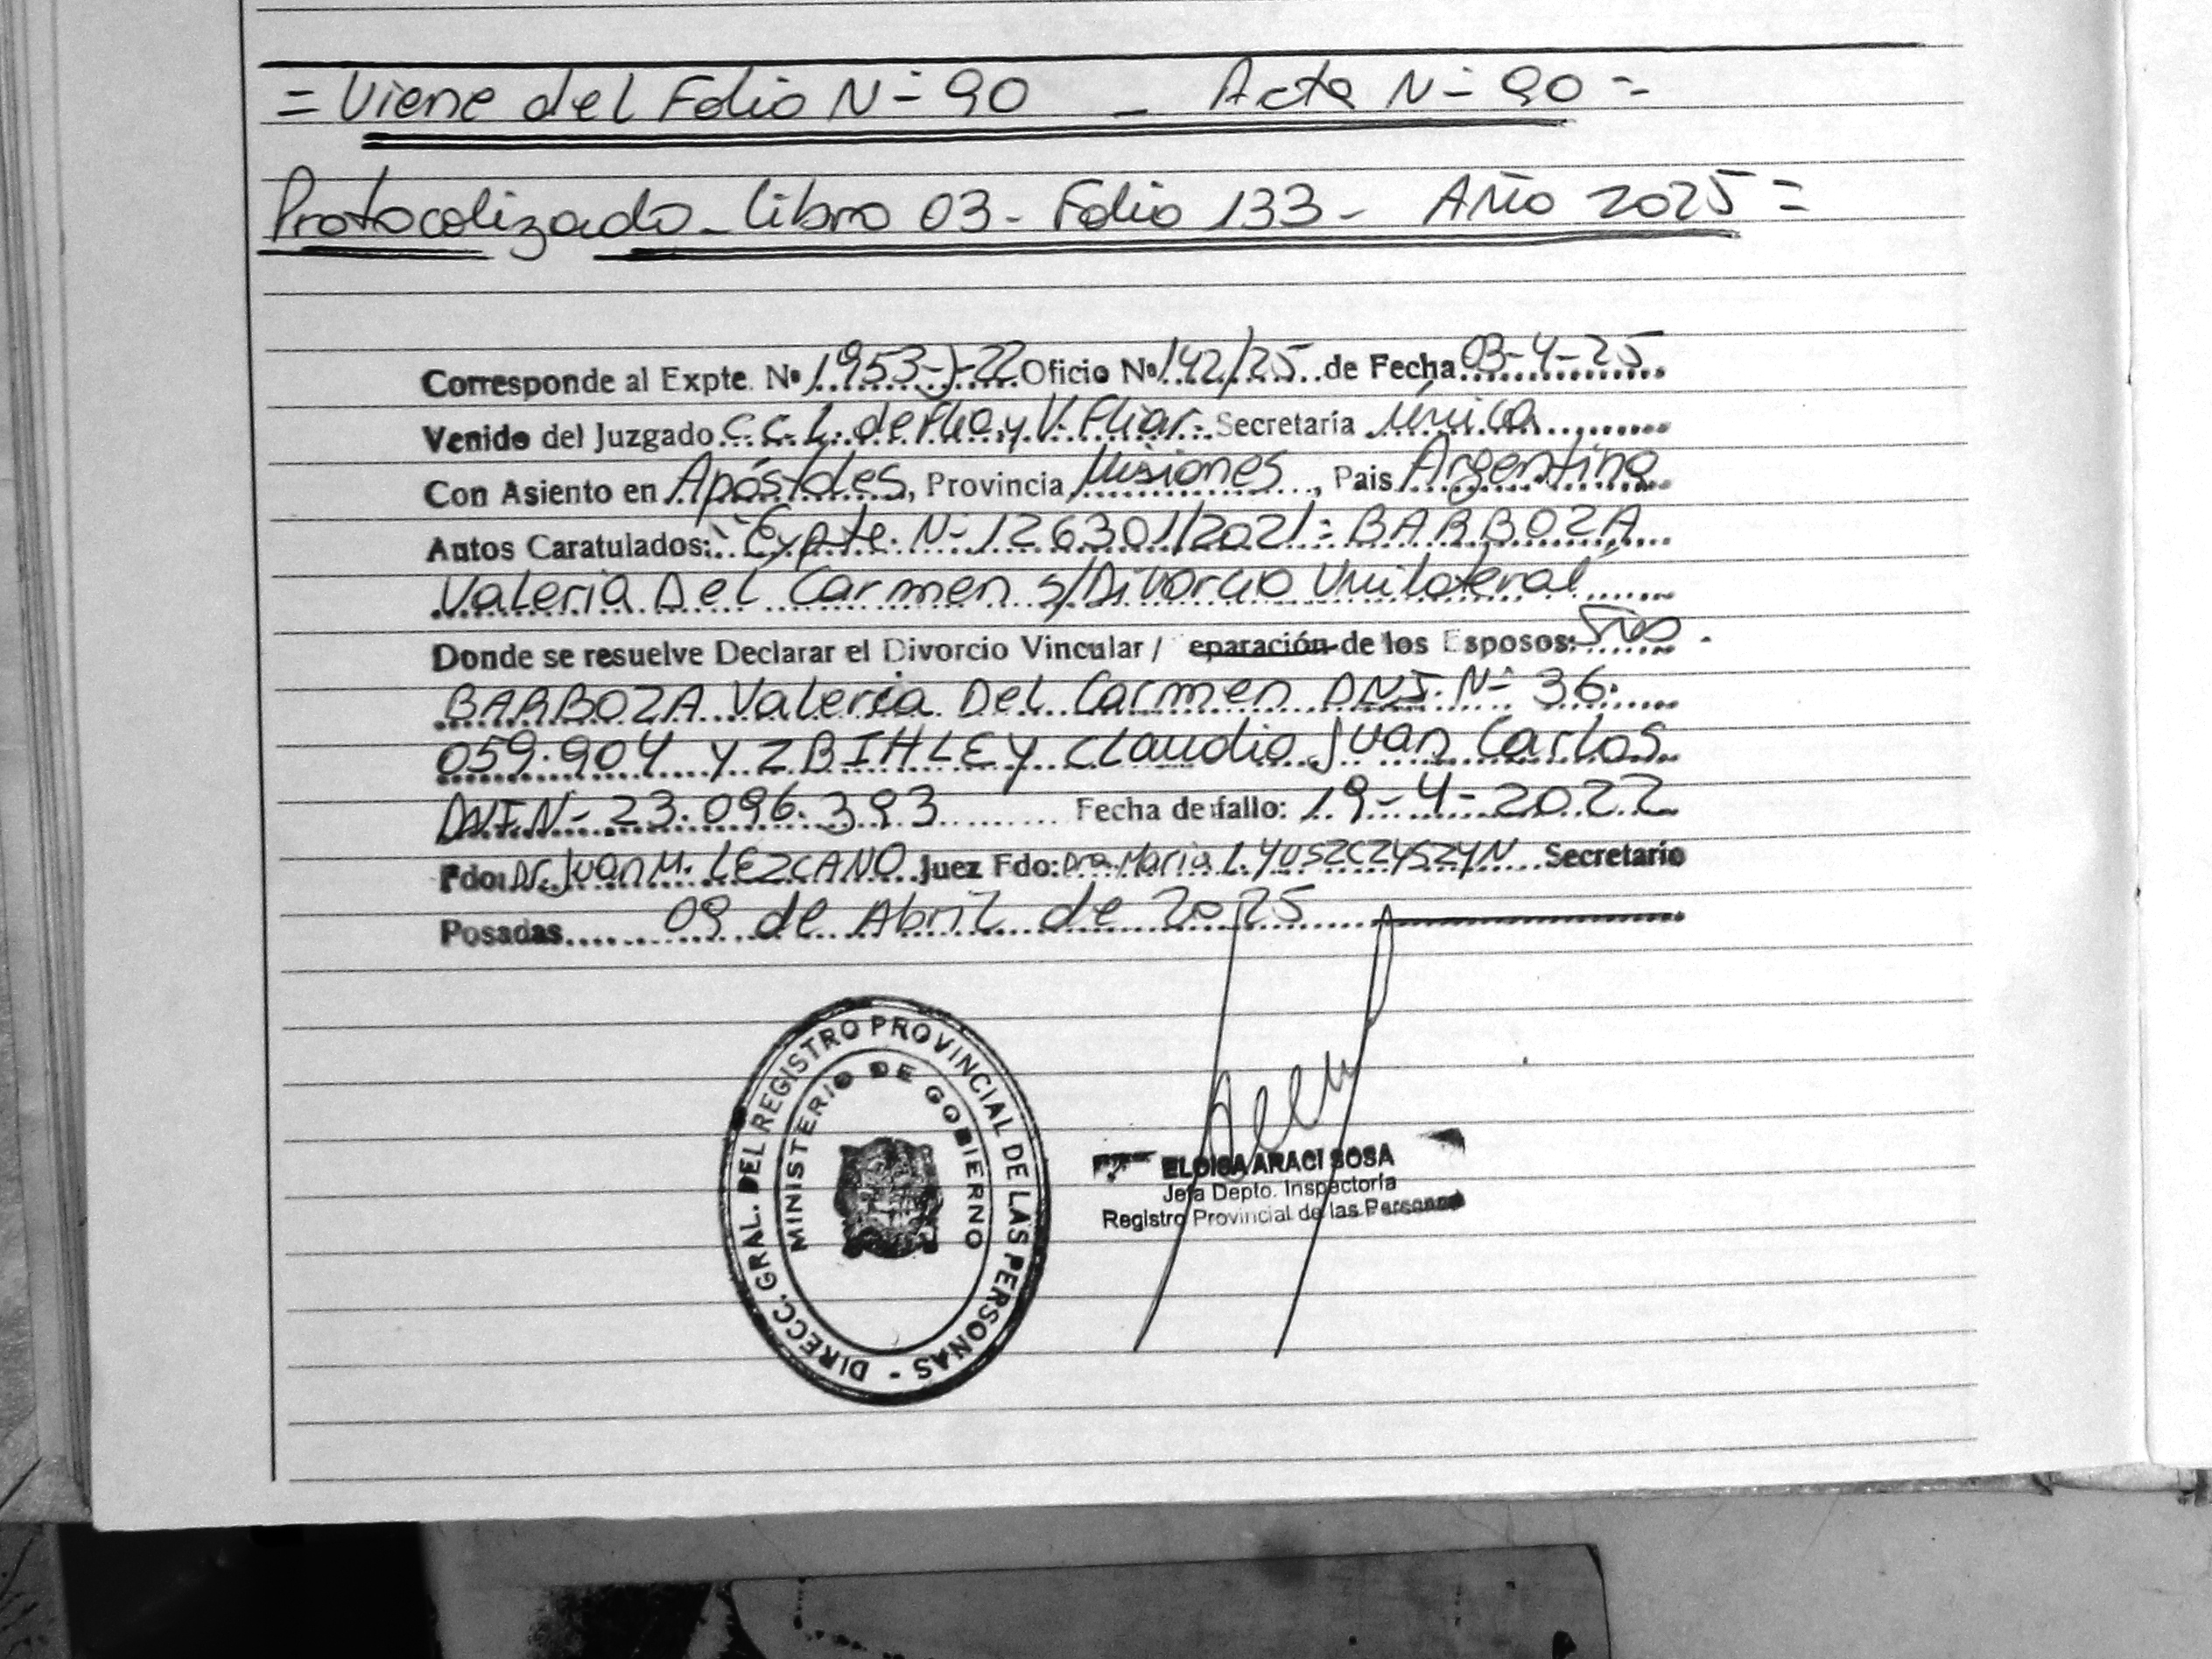 = Viene del Folio N= 90 _ Acta N= 90 =
Protocolizado - libro 03 - Folio 133 - Año 2025 =
Corresponde al Expte. Nº 1953-J-22 Oficio Nº 142/25 de Fecha 03-4-25
Venido del Juzgado C.C.L. de Flia y V. Fliar - Secretaría Única
Con Asiento en Apóstoles, Provincia Misiones, Pais Argentina
Autos Caratulados: "Expte. N- 126301/2021 = BARBOZA
Valeria Del Carmen s/Divorcio Unilateral"
Donde se resuelve Declarar el Divorcio Vincular / eparación de los Esposos: Sres.
BARBOZA Valeria Del Carmen DNI. N- 36.
059.904 y ZBIHLEY Claudio Juan Carlos
DNI N- 23.096.393 Fecha de fallo: 19-4-2022
Fdo: Dr. Juan M. LEZCANO Juez Fdo: Dra. Maria L. YUSZCZYSZYN Secretario
Posadas 09 de Abril de 2025
DIRECC. GRAL. DEL REGISTRO PROVINCIAL DE LAS PERSONAS -
MINISTERIO DE GOBIERNO
ELOISA ARACI SOSA
Jefa Depto. Inspectoría
Registro Provincial de las Personas